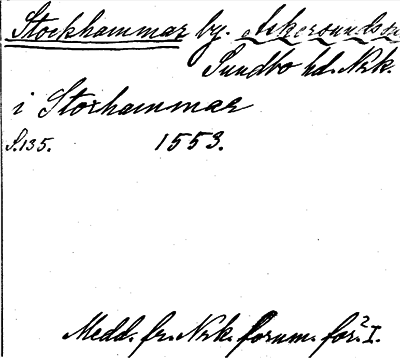 Stockhammar by. Askersunds sn
Sundbo hd. Nrk.
i Storhammar
S.135. 1553.
Medd. fr. Nrk. fornm. för. 2 I.